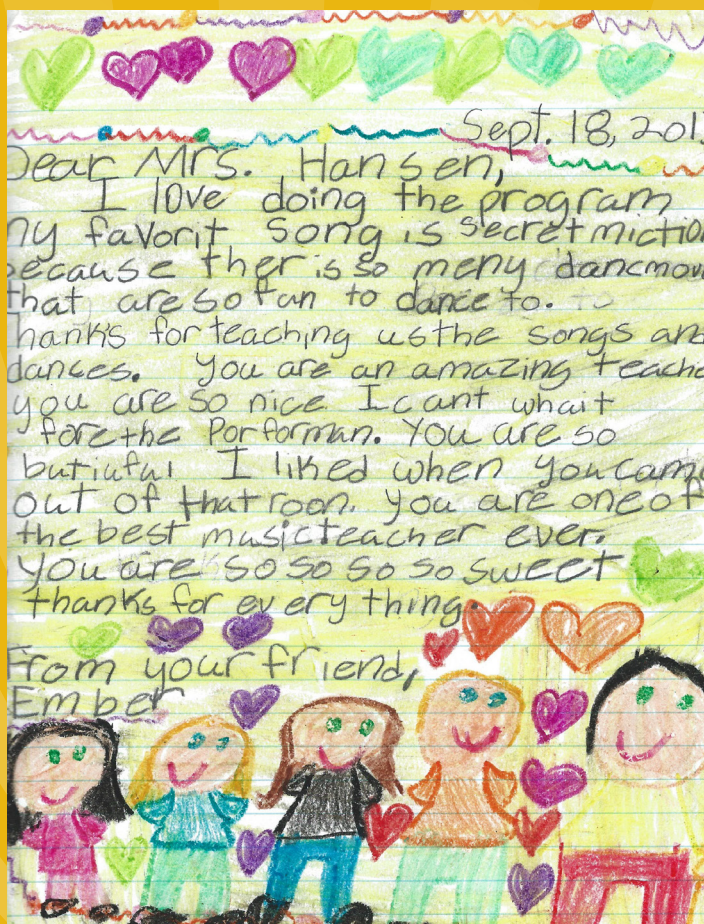 Sept. 18, 201
Dear Mrs. Hansen,
I love doing the program
my favorit song is secret miction
because ther is so meny dancmov
that are so fun to dance to. to
Thanks for teaching us the songs and
dances. You are an amazing teache
you are so nice I cant whait
fore the Porforman. You are so
butiuful I liked when you came
out of that room. you are one of
the best music teacher ever.
You are so so so so sweet
thanks for every thing.
From your friend,
Ember